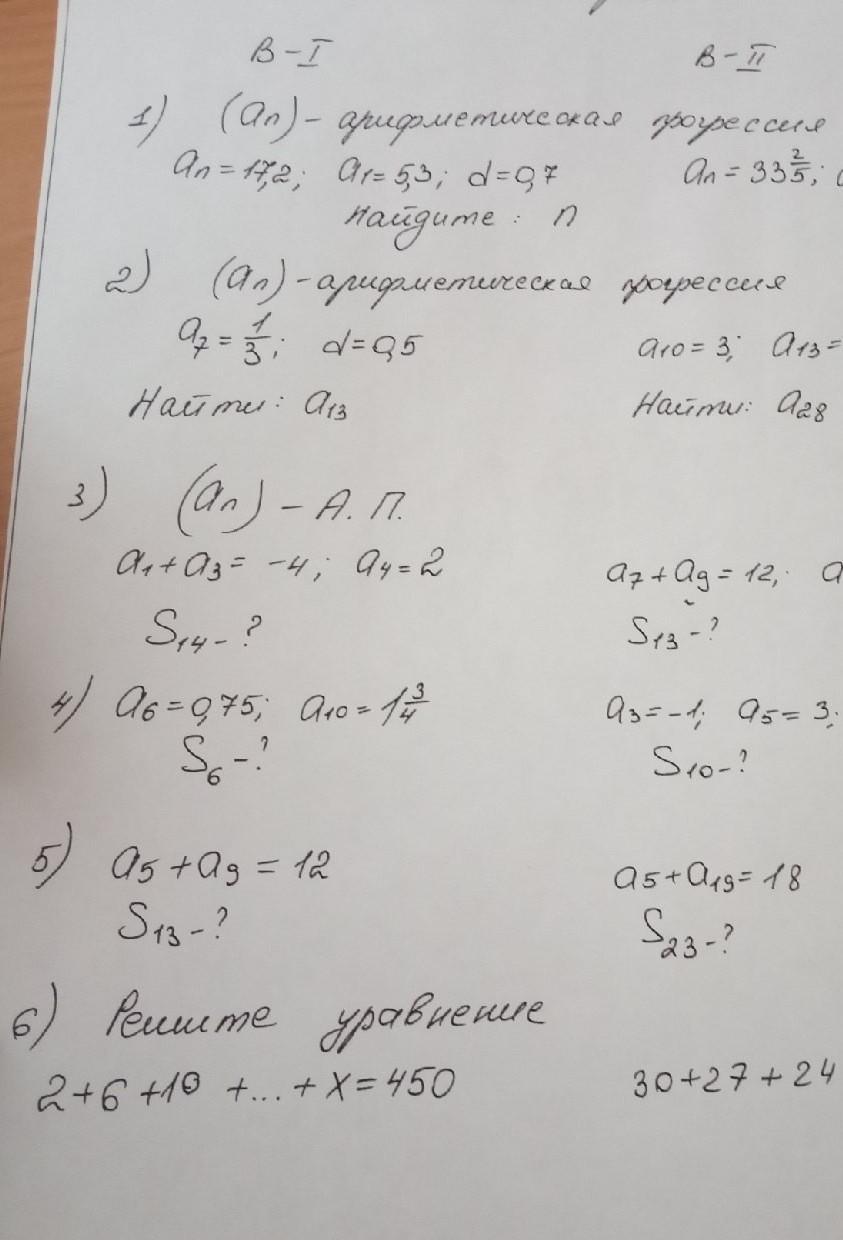 В-I В-II
1) (an) - арифметическая прогрессия
an = 17,2; a1 = 5,3; d = 0,7 an = 33 2/5;
Найдите: n
2) (an) - арифметическая прогрессия
a7 = 1/3; d = 0,5 a10 = 3; a13 =
Найти: a13 Найти: a28
3) (an) - А. П.
a1 + a3 = -4; a4 = 2 a7 + a9 = 12; a
S14 - ? S13 - ?
4) a6 = 0,75; a10 = 1 3/4 a3 = -1; a5 = 3;
S6 - ? S10 - ?
5) a5 + a9 = 12 a5 + a19 = 18
S13 - ? S23 - ?
6) Решите уравнение
2 + 6 + 10 + ... + x = 450 30 + 27 + 24